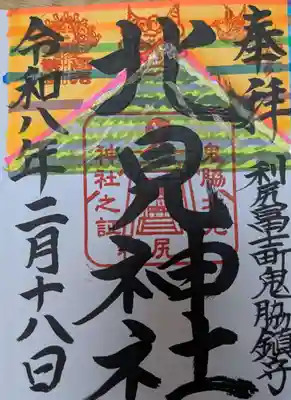 奉拝
利尻富士町鬼脇鎮守
北見神社
令和八年二月十八日
鬼脇北見
神社之証